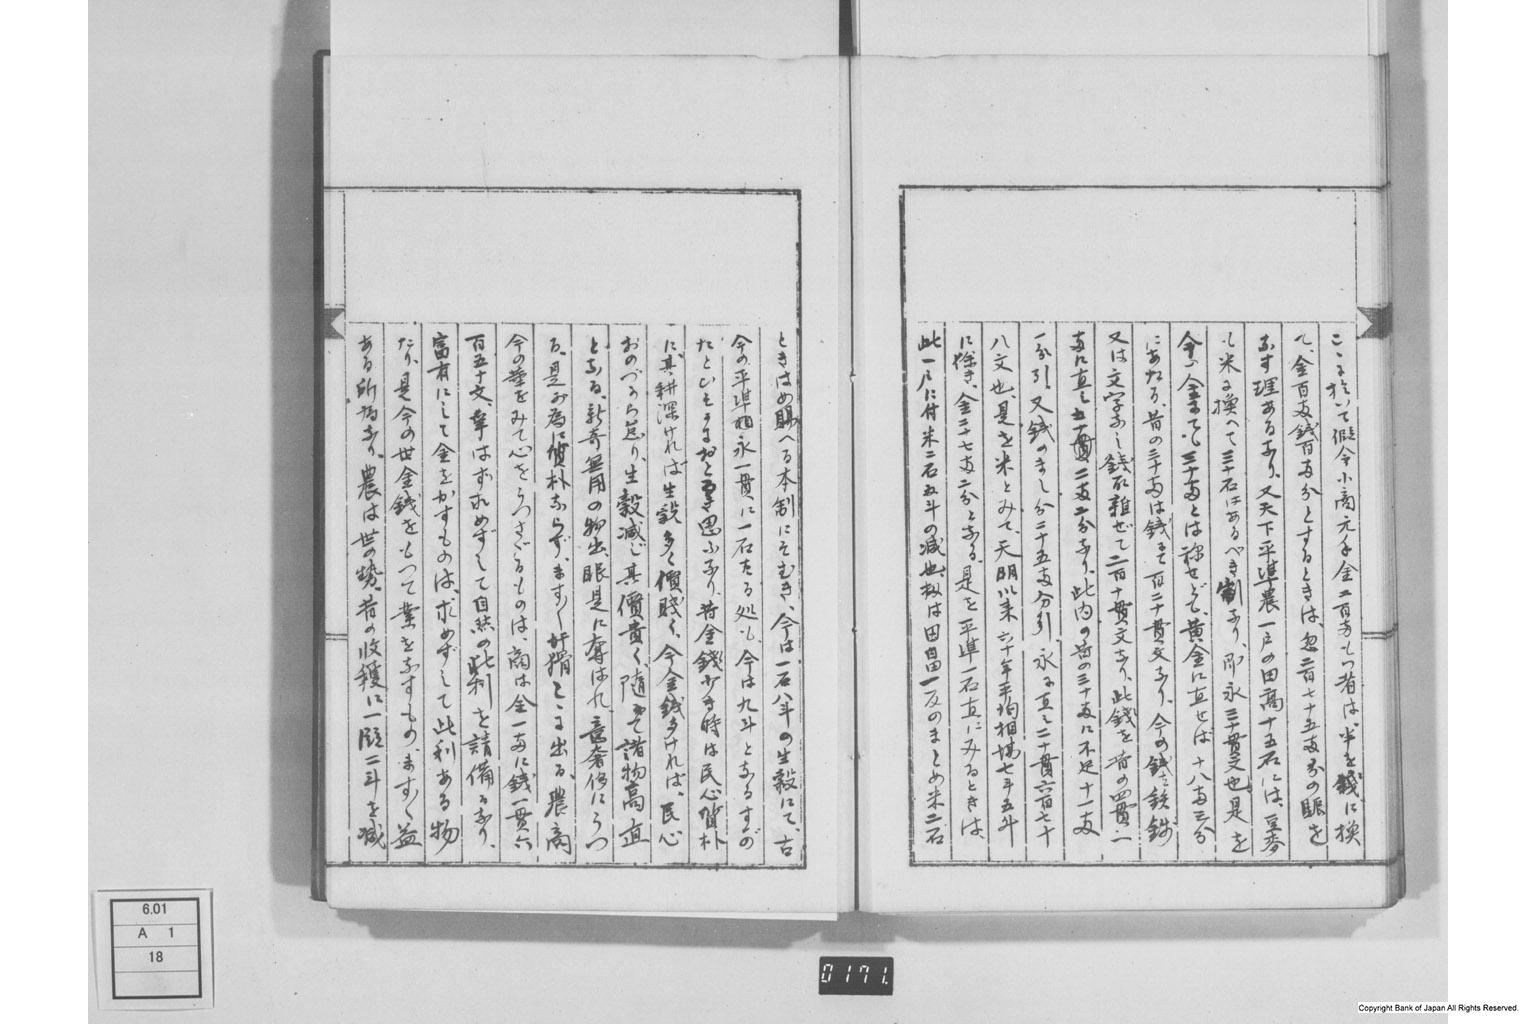 こゝに於いて假令小商元手金二百両もつ者は、半を錢に換
て、金百両錢百両分とするときは、忽二百七十五両分の賑を
なす理あるなり、又天下平準農一戸の田高十五石には、豆麥
も米に換へて三十石にあるべき割なり、即永三十貫文也、是を
今金にても三十両とは称せども、黄金に直せば十八両三分
にあたる、昔の三十両は錢にて百二十貫文なり、今の錢は鉄錢
又は文字なし錢取雜ぜて二百十貫文なり、此錢を昔の四貫一
両に直し五十二両二分なり、此内の昔の三十両に不足十一両
一分引、又錢のまし分二十五両分引、永に直し二十貫六百七十
八文也、是を米とみて、天明以来六十年平均相場七斗五升
に除き、金二十七両二分となる、是を平準一石直にみるときは、
此一戸に付米二石五斗の減也、扨は田畠一反のまとめ米二石
ときはめ賜へる本制にそむき、今は一石八斗の生穀にて、古
今の平準相永一貫に一石たる処も、今は九斗となるすぢの
たとひもうすおと思ふなり、昔金錢少き時は民心質朴
に、其耕深ければ生穀多く價賤く、今金錢多ければ、民心
おのづから怠り、生穀減じ其價貴く、隨て諸物高直
となる、新奇無用の物出、眼是に奪はれ、意奢侈にうつ
る、是が為に質朴ならず、ます〱奸猾こゝに出る、農商
今の業をみて心をうつさざるものは、商は金一両に錢一貫六
百五十文、幸はずれめずして自然の此利を請備るなり、
富有にして金をかすものは、求めずして此利ある物
なり、是今の世金錢をもつて業をなすもの、ます〱益
ある所為なり、農は世の勢、昔の收穫に一段二斗を減
6.01
A 1
18
0171.
Copyright Bank of Japan All Rights Reserved.